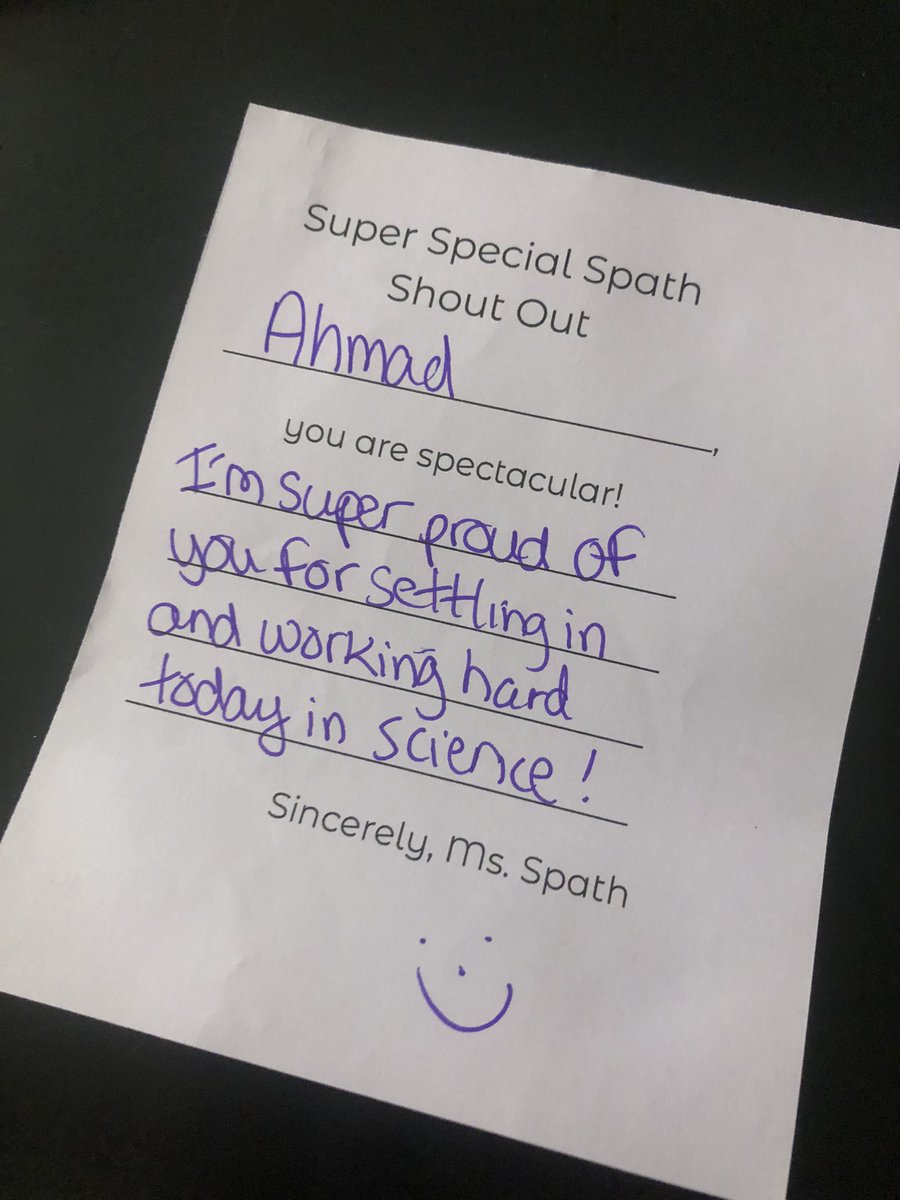 Super Special Spath
Shout Out
Ahmad,
you are spectacular!
I'm super proud of
you for settling in
and working hard
today in science!
Sincerely, Ms. Spath